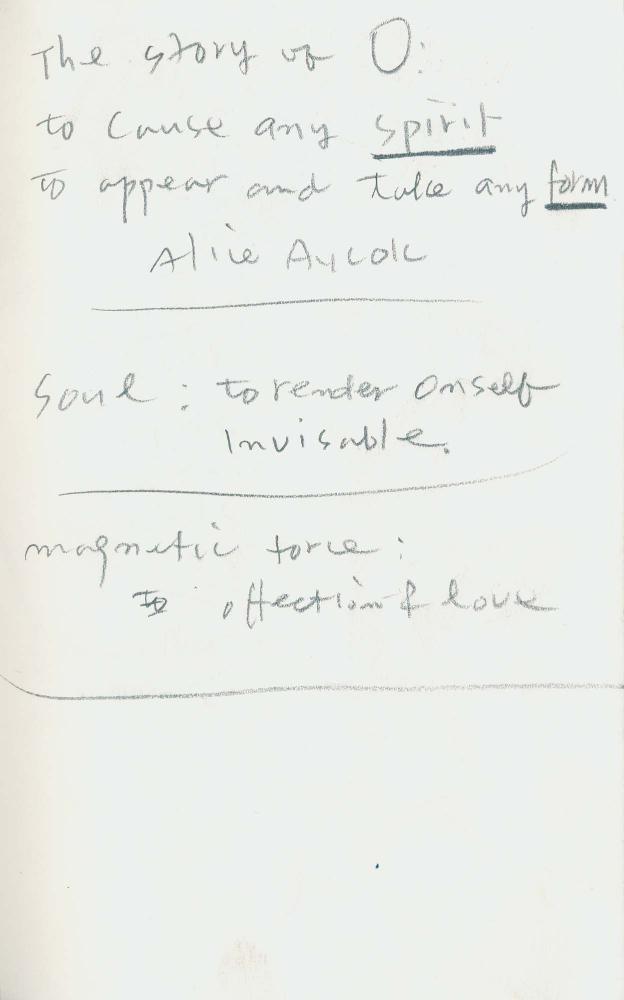 The story of O:
to cause any spirit
to appear and take any form
Alice Aycock
Soul : to render onself
Invisable.
magnetic force :
to affection & love